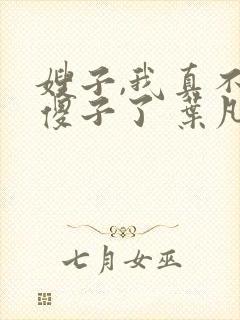 嫂子,我真不
傻子了 葉凡
七月女巫